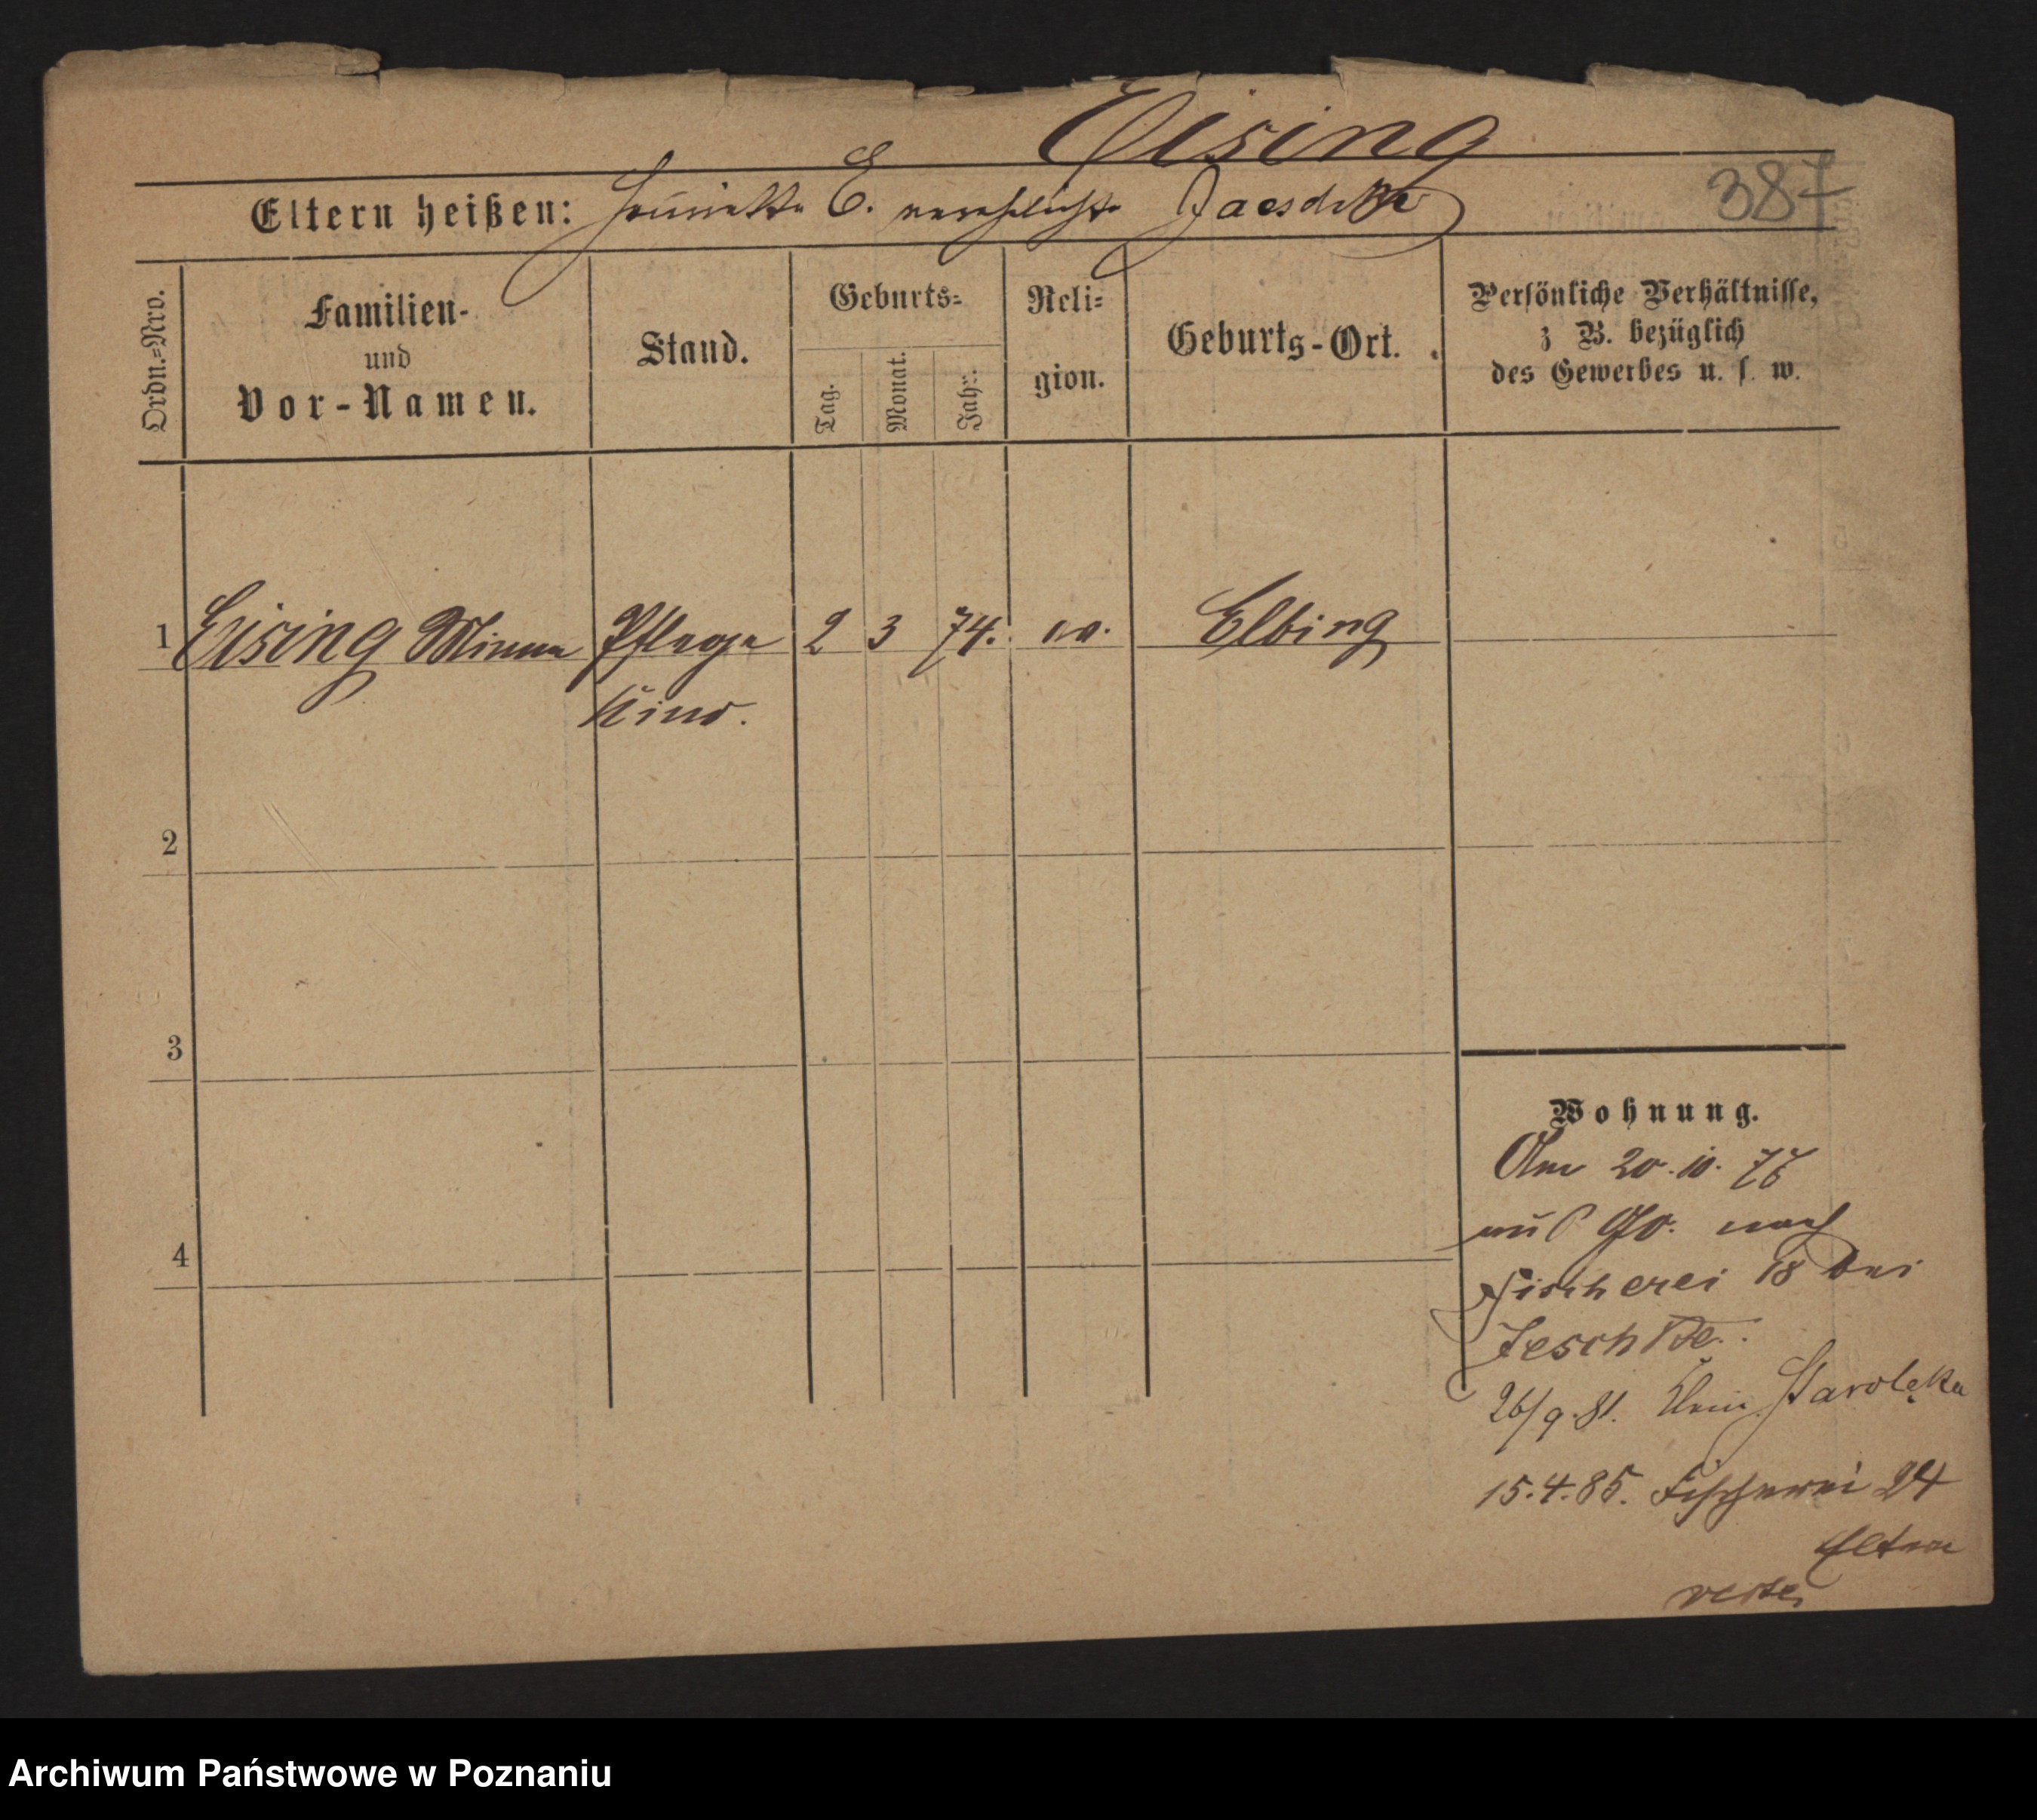 Eising
387
Eltern heißen: Henriette E. verehelichte Jaeschke
Ordn.=Nro.
Familien-
und
Vor-Namen.
Stand.
Geburts=
Tag.
Monat.
Jahr.
Reli=
gion.
Geburts-Ort.
Persönliche Verhältnisse,
z B. bezüglich
des Gewerbes u. s. w.
1 Eising Minna Pflege 2 3 74. ev. Elbing
Kind.
2
3
4
Wohnung.
Am 20.10.76
nach
Fischerei 18 bei
Jeschke.
26/9.81. Klein Starolęka
15.4.85. Fischerei 24
Eltern
Archiwum Państwowe w Poznaniu